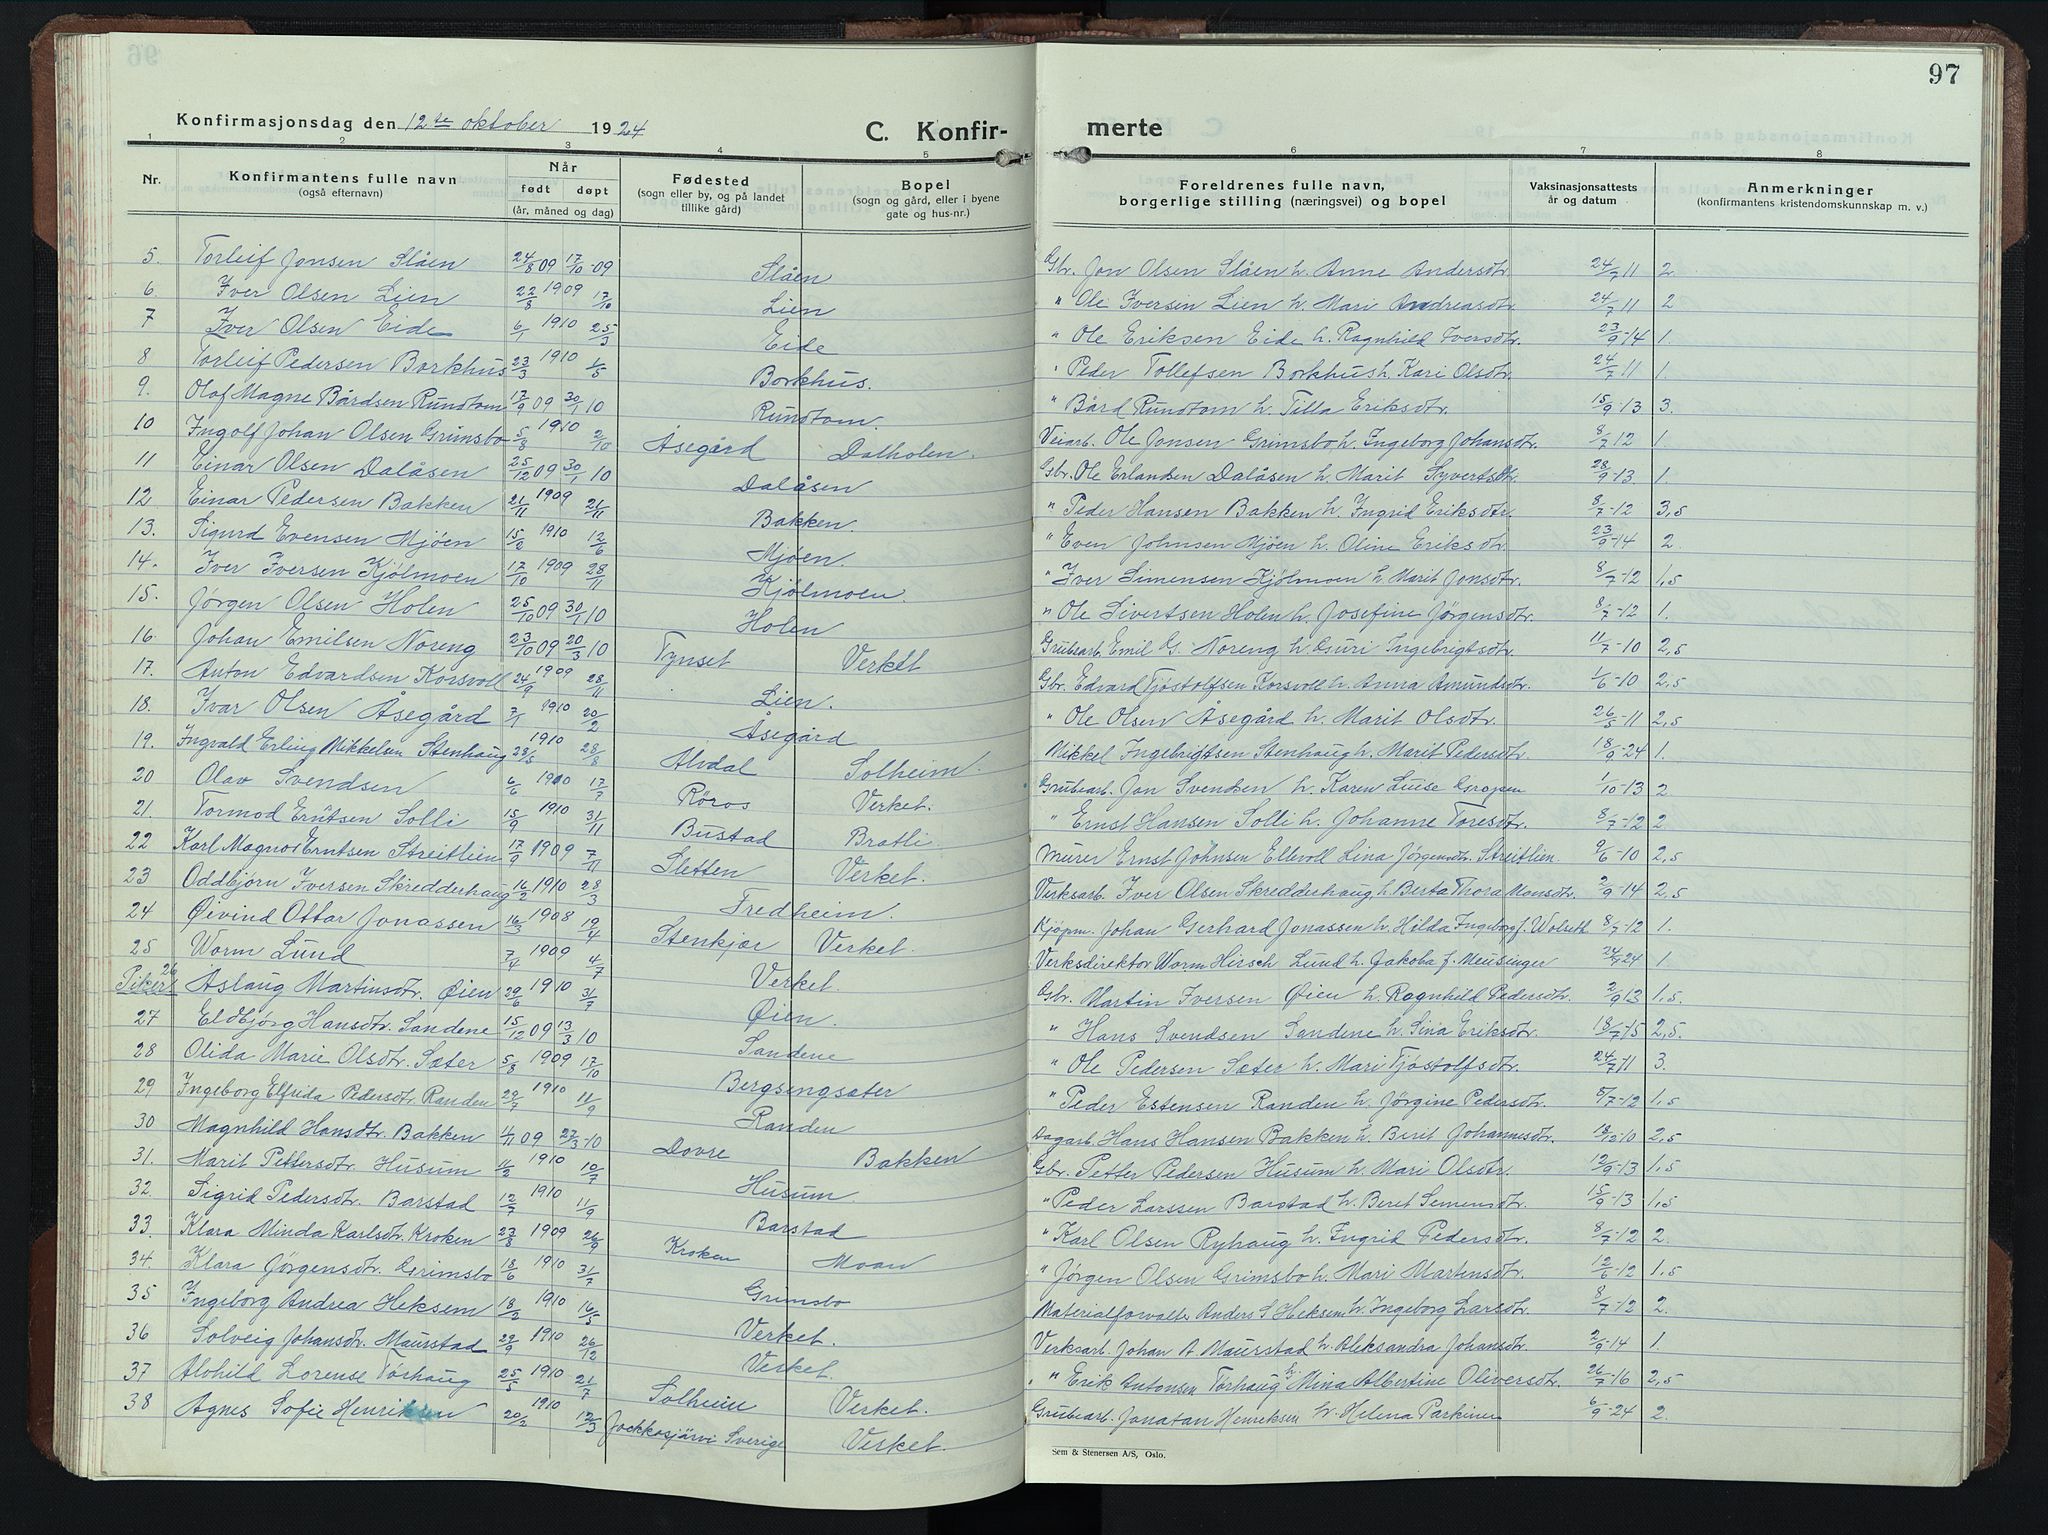 97
Konfirmasjonsdag den 12te oktober 1924
C. Konfir- merte
1 2 3 4 5 6 7 8
Nr. Konfirmantens fulle navn (også efternavn) Når født døpt (år, måned og dag) Fødested (sogn eller by, og på landet tillike gård) Bopel (sogn og gård, eller i byene gate og hus-nr.) Foreldrenes fulle navn, borgerlige stilling (næringsvei) og bopel Vaksinasjonsattests år og datum Anmerkninger (konfirmantens kristendomskunnskap m. v.)
5. Torleif Jonsen Slåen 24/8 09 17/10-09 Slåen Gbr. Jon Olsen Slåen h. Anne Andersdtr. 24/7 11 2.
6 Iver Olsen Lien 22/8 1909 17/10 Lien " Ole Iversen Lien h. Mari Andreasdtr. 24/7 11 2
7 Iver Olsen Eide 6/1 1910 25/3 Eide " Ole Eriksen Eide h. Ragnhild Iversdtr. 23/9-14 1.
8 Torleif Pedersen Borkhus 23/3 1910 1/5 Borkhus. " Peder Tollefsen Borkhus h. Kari Olsdtr. 24/7 11 1.
9. Olaf Magne Bårdsen Rundtom 17/9 09 30/1 10 Rundtom. " Bård Rundtom h. Tilla Eriksdtr. 15/9-13 3.
10 Ingolf Johan Olsen Grimsbo 5/8 1910 2/10 Åsegård Dalholen. Veiarb. Ole Jonsen Grimsbo h. Ingeborg Johansdtr. 8/7 12 1.
11 Einar Olsen Dalåsen 25/12 09 30/1 10 Dalåsen Gbr. Ole Erlandsen Dalåsen h. Marit Syvertsdtr. 28/9-13 1.
12 Einar Pedersen Bakken 21/11 1909 21/11 Bakken. " Peder Hansen Bakken h. Ingrid Eriksdtr. 8/7-12 3,5
13. Sigurd Evensen Mjøen 15/2 1910 12/6 Mjøen. " Even Johnsen Mjøen h. Oline Eriksdtr. 23/9-14 2.
14. Iver Iversen Kjølmoen 17/10 1909 28/11 Kjølmoen. " Iver Simensen Kjølmoen h. Marit Jonsdtr. 8/7-12 1,5
15. Jørgen Olsen Holen 25/10 09 30/1 10 Holen " Ole Sivertsen Holen h. Josefine Jørgensdtr. 8/7-12 1.
16. Johan Emilsen Noreng 23/10 09 20/3 10 Tynset Verket Grubearb. Emil G. Noreng h. Guri Ingebrigtsdtr. 11/7-10 2,5
17. Anton Edvardsen Korsvoll 24/9 1909 28/11 Lien. Gbr. Edvard Tjøstolfsen Korsvoll h. Anna Amundsdtr. 1/6-10 2,5
18. Ivar Olsen Åsegård 7/1 1910 20/2 Åsegård " Ole Olsen Åsegård h. Marit Olsdtr. 26/5-11 2,5
19. Ingvald Erling Mikkelsen Stenhaug 28/5 1910 28/8 Alvdal Solheim. Mikkel Ingebrigtsen Stenhaug h. Marit Pedersdtr. 18/9-24 1.
20 Olav Svendsen 6/6 1910 17/7 Røros Verket. Grubearb. Jon Svendsen h. Karen Luise Gropen 1/10-13 2.
21. Tormod Erntsen Solli 15/9 1910 31/11 Bustad Bratli " Ernst Hansen Solli h. Johanne Toresdtr. 8/7-12 2.
22 Karl Magnos Erntsen Streitlien 17/9 1909 7/11 Sletten Verket. Murer Ernst Johnsen Ellevoll Lina Jørgensdtr. Streitlien. 9/6-10 2,5
23 Oddbjørn Iversen Skredderhaug 16/2 1910 28/3 Fredheim. Verksarb. Iver Olsen Skredderhaug h. Berta Thora Mansdtr. 2/9-14 2,5
24 Øivind Ottar Jonassen 16/3 1908 19/4 Stenkjær Verket. Kjøpm. Johan Gerhard Jonassen h. Hilda Ingeborg f. Wolseth 8/7-12 1.
25 Worm Lund 7/4 1909 4/7 Verket. Verksdirektør Worm Hirsch Lund h. Jakoba f. Meusinger 24/9 24 1
Piker. 26 Åslaug Martinsdtr. Øien 29/6 1910 31/7 Øien. Gbr. Martin Iversen Øien h. Ragnhild Pedersdtr. 2/9 13 1,5.
27 Eldbjørg Hansdtr. Sandene 15/12 09 13/3 10 Sandene " Hans Svendsen Sandene h. Sina Eriksdtr. 18/7-15 2,5.
28 Olida Marie Olsdtr. Sæter 5/8 1909 17/10 Bergsengsæter " Ole Pedersen Sæter h. Mari Tjøstolfsdtr. 24/7 11 3.
29 Ingeborg Elfrida Pedersdtr. Randen 29/7 1910 11/9 Randen " Peder Estensen Randen h. Jørgine Pedersdtr. 5/7-12 1,5
30 Magnhild Hansdtr. Bakken 11/11 09 27/3-10 Dovre Bakken Dagarb. Hans Hansen Bakken h. Berit Johannesdtr. 18/12-10 2,5
31. Marit Pettersdtr. Husum 11/2 1910 10/7 Husum Gbr. Petter Pedersen Husum h. Mari Olsdtr. 12/9-13 1,5
32 Sigrid Pedersdtr. Barstad 12/7 1910 11/9 Barstad " Peder Larssen Barstad h. Beret Semensdtr. 15/9-13 1,5
33 Klara Minda Karlsdtr. Kroken 23/8 1909 26/9 Kroken Moan " Karl Olsen Ryhaug h. Ingrid Pedersdtr. 8/7-12 2.
34. Klara Jørgensdtr. Grimsbo 18/6 1910 31/7 Grimsbo " Jørgen Olsen Grimsbo h. Mari Martinsdtr. 12/6-12 1,5
35 Ingeborg Andrea Heksem 18/2 1910 16/5 Verket. Materialforvalter Anders S Heksem h. Ingeborg Larsdtr. 8/7-12 2.
36 Solveig Johansdtr. Maurstad 29/9 1910 26/12 Verket. Verksarb. Johan A Maurstad h. Aleksandra Johansdtr. 2/9-14 1.
37 Alvhild Lorense Tørhaug 25/5 1910 21/7 Solheim Verket. " Erik Antonsen Tørhaug h. Mina Albertine Oliversdtr. 26/7-16 2,5
38 Agnes Sofie Henriksen 20/2 1910 12/3 Jockkasjärvi Sverige Verket. Grubearb. Jonatan Henriksen h. Helena Parkinen 6/9-24 2.
Sem & Stenersen A/S, Oslo.